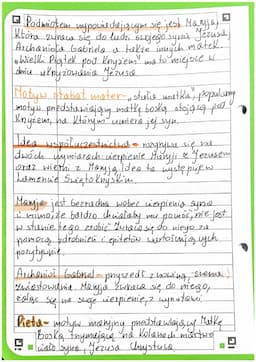 Podmiotem wypowiadającym się jest Maryja,
która zwraca się do ludzi, swojego syna Jezusa,
Archanioła Gabriela a także innych matek.
"Wielki Piątek pod krzyżem" ma to miejsce w
dniu ukrzyżowania Jezusa.
Motyw stabat mater - "stała matka", popularny
motyw przedstawiającym matkę boską stojącą pod
krzyżem, na którym umiera jej syn.
Idea współuczestnictwa - rozgrywa się na
dwóch wymiarach cierpienie Maryji z Jezusem
oraz wierni z Maryją. Idea ta występuje w
Lamencie Świętokrzyskim.
Maryja jest bezradna wobec cierpienia syna
i mimo że bardzo chciałaby mu pomóc, nie jest
w stanie tego zrobić. Zwraca się do niego za
pomocą zdrobnień i epitetów wartościujących
pozytywnie.
Archanioł Gabriel - przyszedł z nowiną,
zwiastowania. Maryja zwraca się do niego,
żaląc się na swoje cierpienie, z wyrzutami.
Pieta - motyw maryjny przedstawiający Matkę
Boską trzymającą na kolanach martwe
ciało syna, Jezusa Chrystusa.